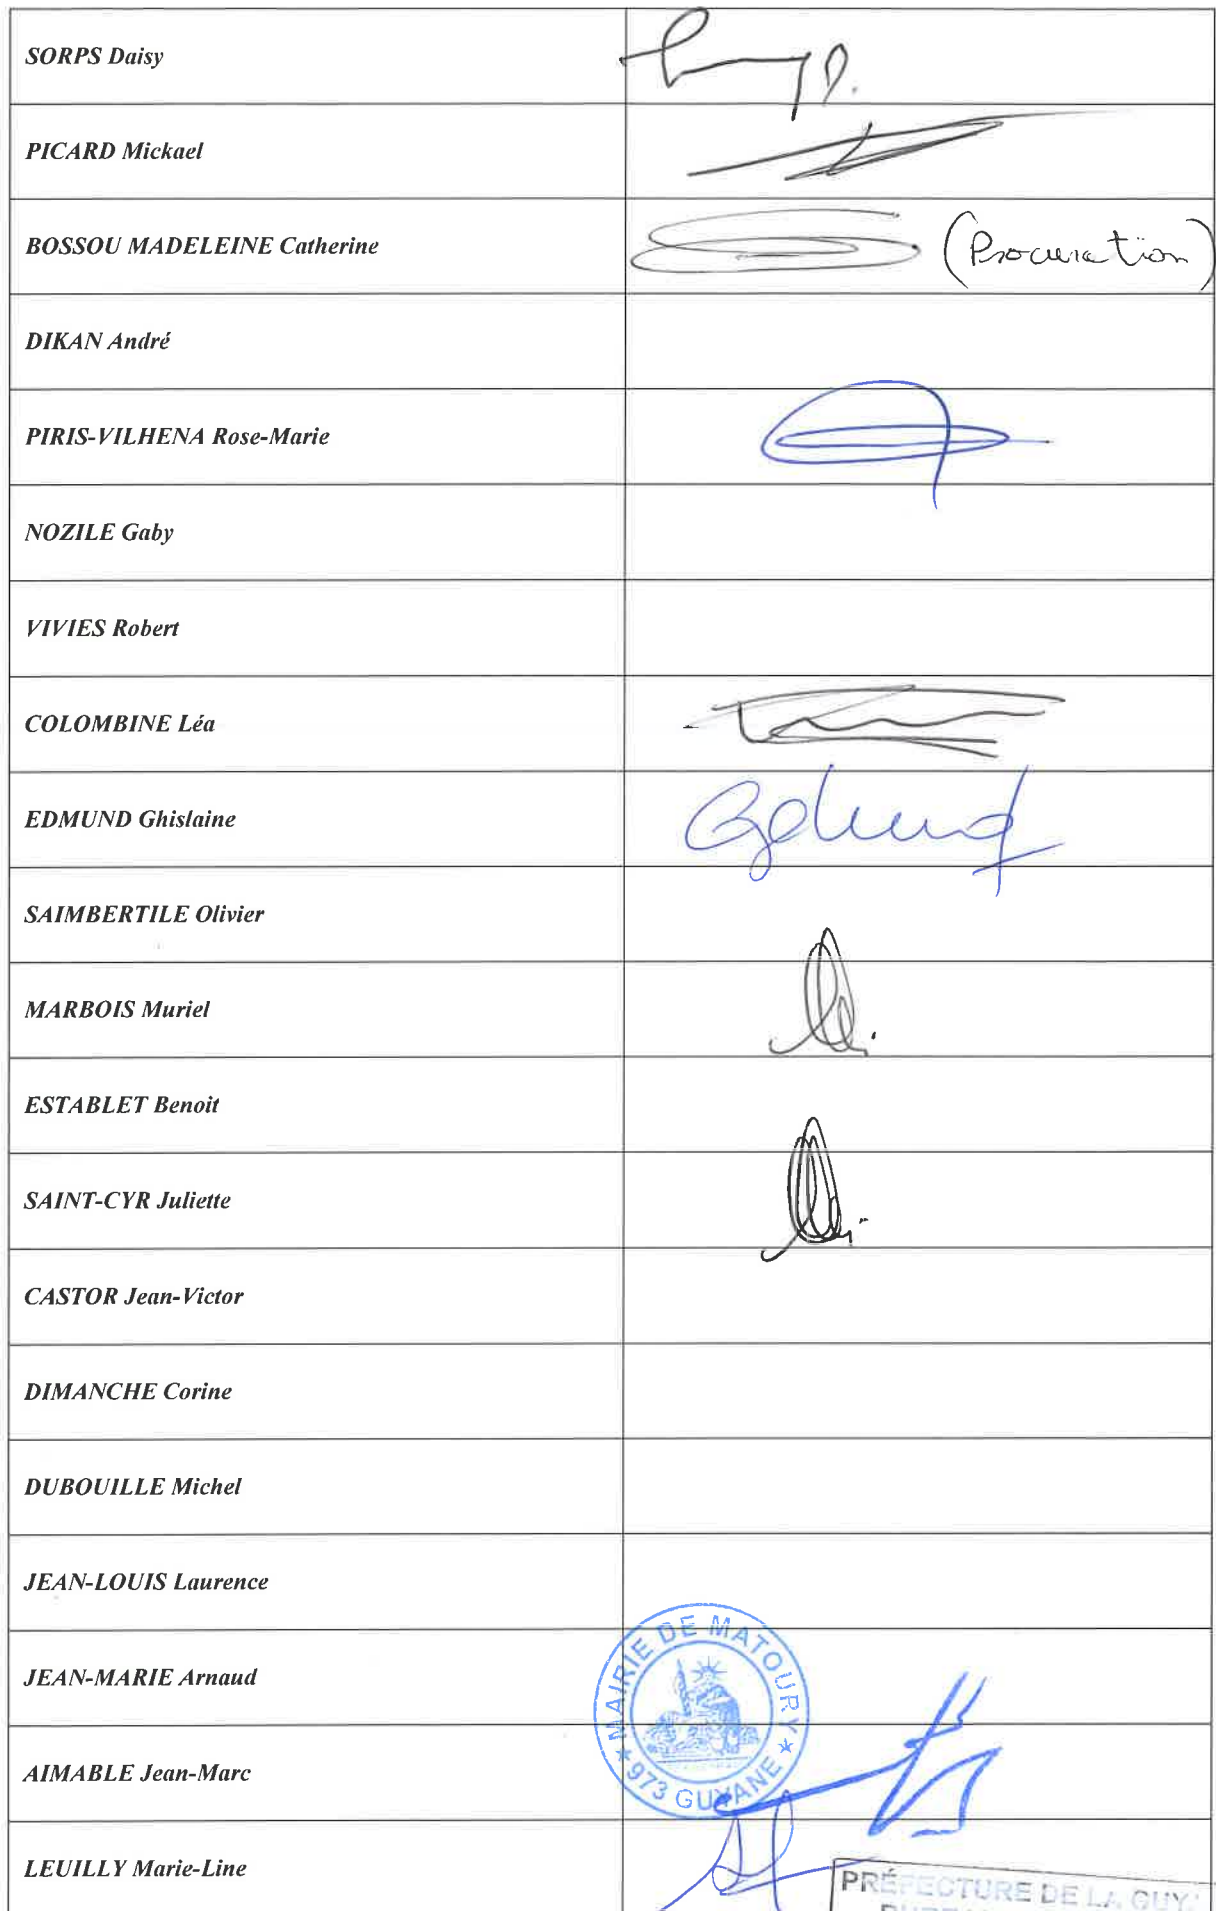 SORPS Daisy
PICARD Mickael
BOSSOU MADELEINE Catherine
(Procuration)
DIKAN André
PIRIS-VILHENA Rose-Marie
NOZILE Gaby
VIVIES Robert
COLOMBINE Léa
EDMUND Ghislaine
SAIMBERTILE Olivier
MARBOIS Muriel
ESTABLET Benoit
SAINT-CYR Juliette
CASTOR Jean-Victor
DIMANCHE Corine
DUBOUILLE Michel
JEAN-LOUIS Laurence
JEAN-MARIE Arnaud
MAIRIE DE MATOURY
973 GUYANE
AIMABLE Jean-Marc
LEUILLY Marie-Line
PRÉFECTURE DE LA GUY